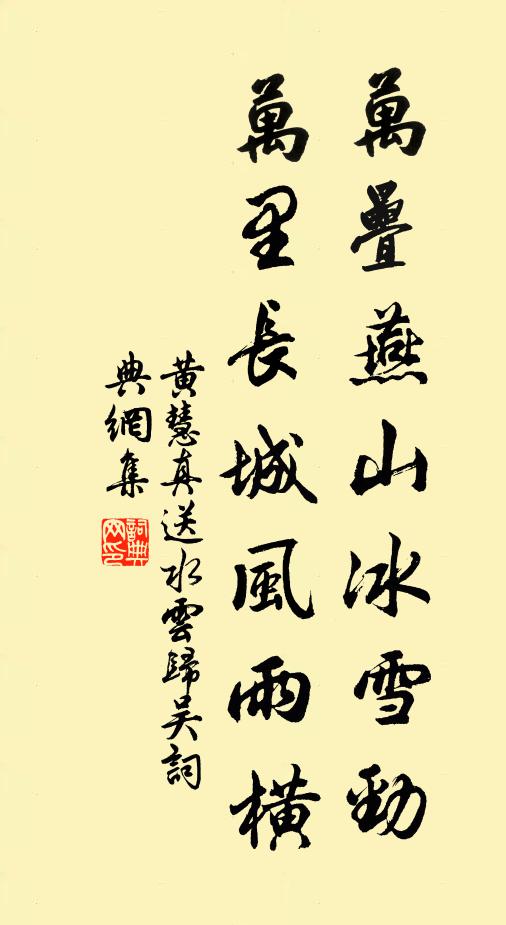 萬疊燕山冰雪勁
萬里長城風雨橫
黃慧真送水雲歸吴詞
典網集
詞典網印